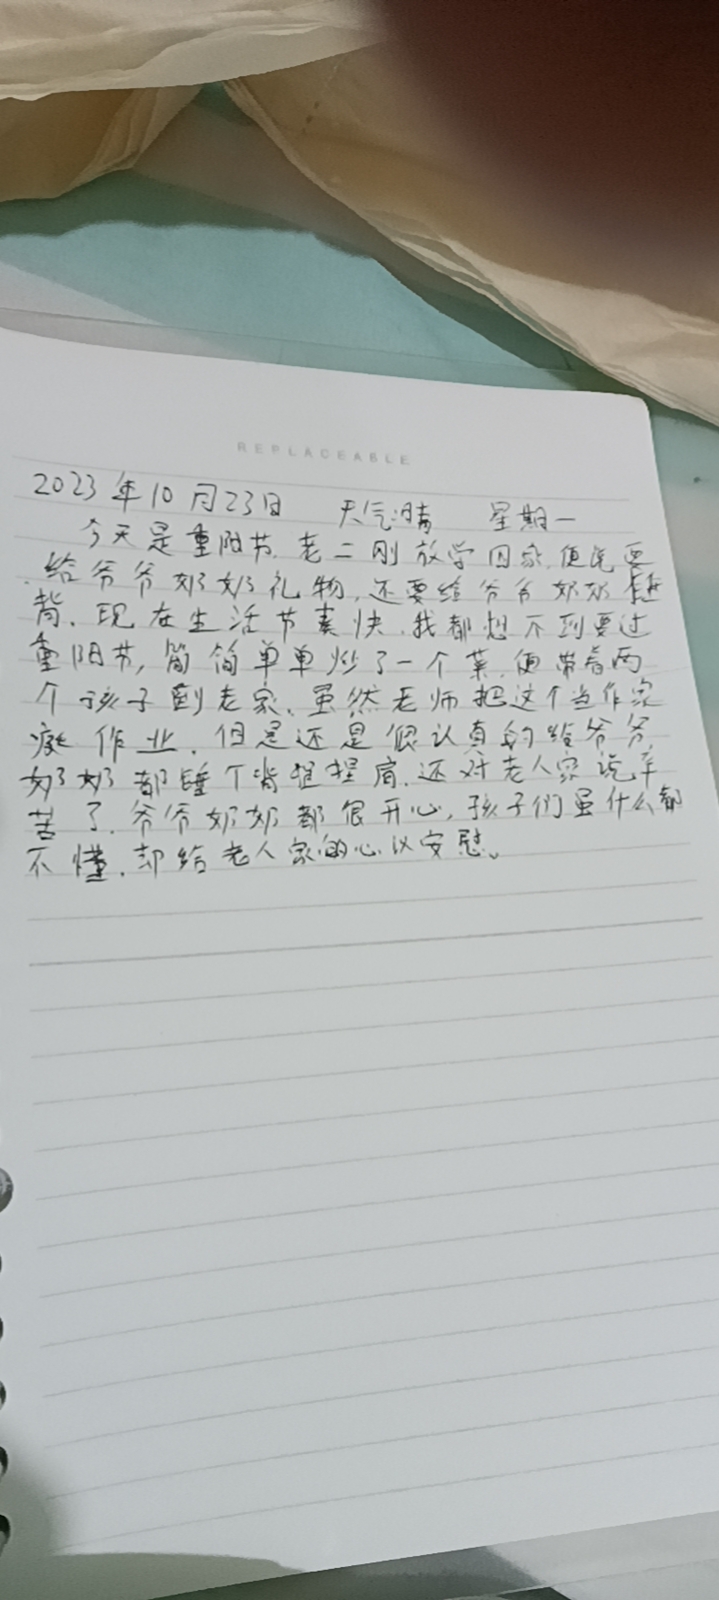 REPLACEABLE
2023年10月23日 天气:晴 星期一
今天是重阳节,老二刚放学回家,便说要
给爷爷奶奶礼物,还要给爷爷奶奶捶
背,现在生活节奏快,我都想不到要过
重阳节,简简单单炒了一个菜,便带着两
个孩子到老家、虽然老师把这个当作家
庭作业,但是还是很认真的给爷爷
奶奶都锤个背捏捏肩,还对老人家说辛
苦了,爷爷奶奶都很开心,孩子们虽什么都
不懂,却给老人家的心以安慰。